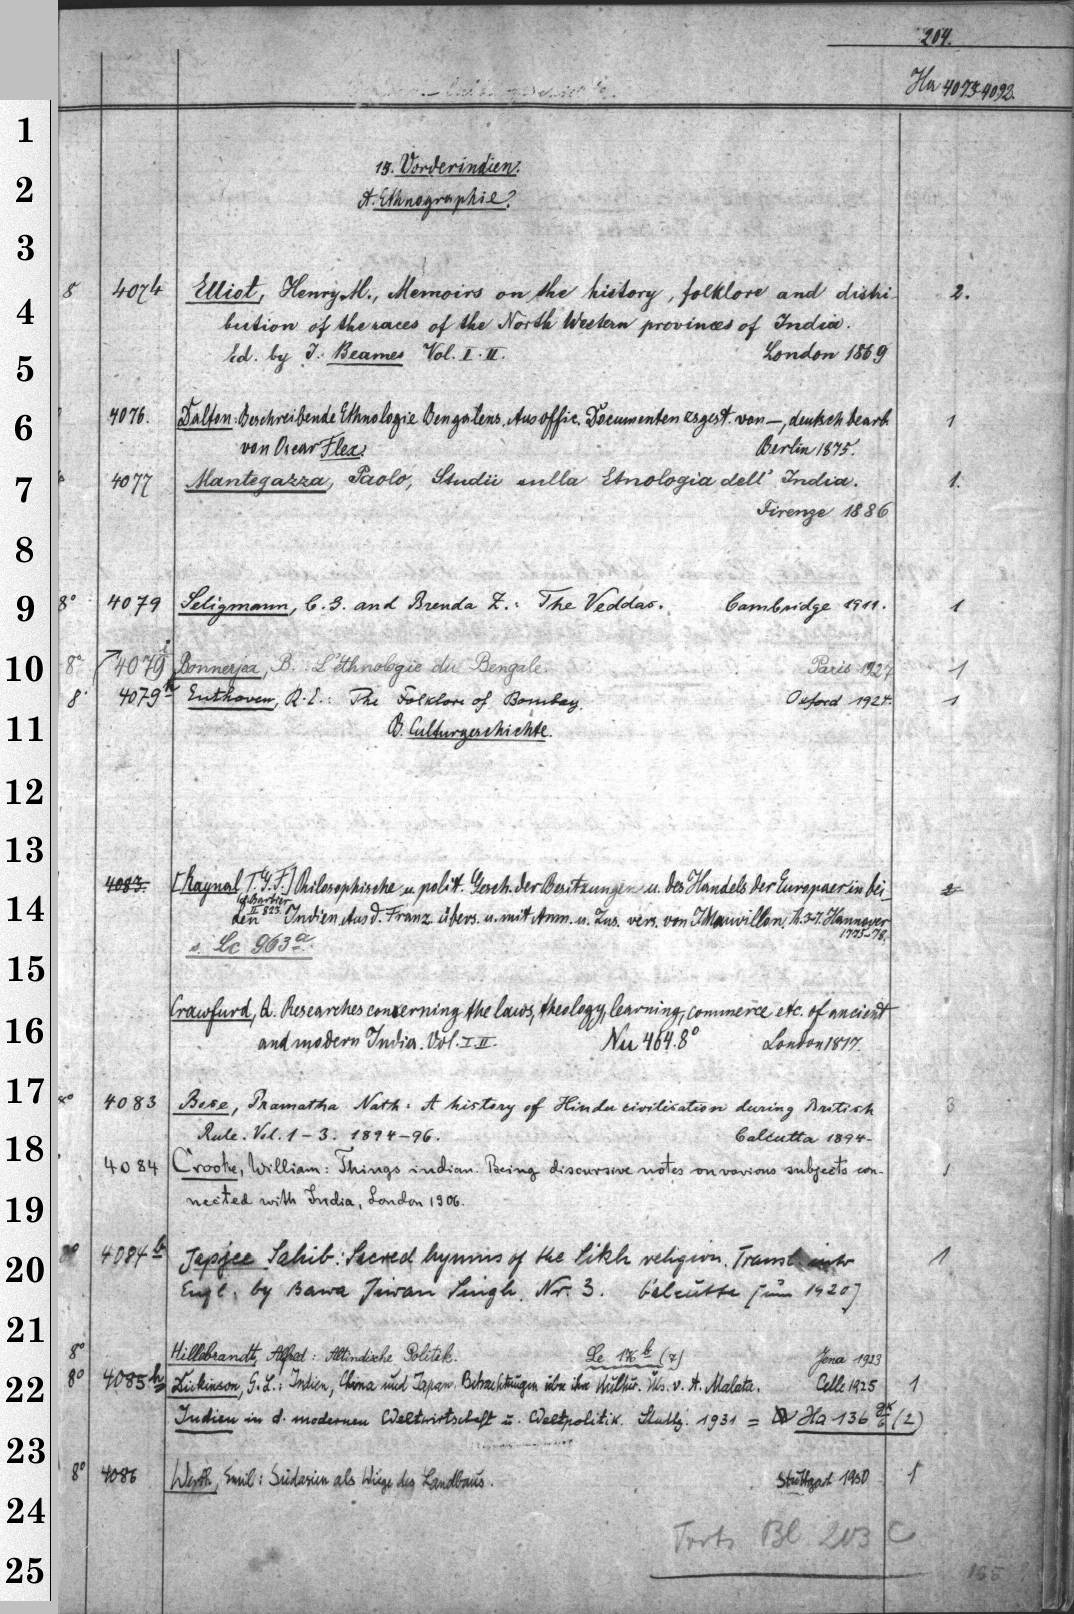 204.
Ha 4073-4092.
1
15. Vorderindien.
2
A. Ethnographie.
3
8 4074 Elliot, Henry M., Memoirs on the history, folklore and distri- 2.
4
bution of the races of the North Western provinces of India.
Ed. by J. Beames Vol. I. II. London 1869
5
4076. Dalton: Beschreibende Ethnologie Bengalens. Aus offic. Documenten ausgest. von —, deutsch bearb. 1
6
von Oscar Flex. Berlin 1875.
7 4077 Mantegazza, Paolo, Studii sulla Etnologia dell' India. 1.
Firenze 1886
8
9 8° 4079 Seligmann, C. G. and Brenda Z.: The Veddas. Cambridge 1911. 1
10 8° 4079 Bonnerjea, B. L'éthnologie du Bengale. Paris 1927 1
8° 4079 Enthoven, R. E.: The Folklore of Bombay. Oxford 1924. 1
11 B. Culturgeschichte.
12
13
4083. [Raynal, T. G. F.] Philosophische u. polit. Gesch. der Besitzungen u. des Handels der Europaer in bei- 2
14
den Indien Aus d. Franz. übers. u. mit Anm. u. Zus. vers. von J. Mauvillon. Th. 3-7. Hannover
1775-78.
s. Lc 963 a.
15
Crawfurd, Q. Researches concerning the laws, theology, learning, commerce etc. of ancient
16 and modern India. Vol. I. II. Nu 464.8° London 1817.
17 8° 4083 Bose, Pramatha Nath: A history of Hindu civilisation during British 3
Rule. Vol. 1-3. 1894-96. Calcutta 1894-
18
4084 Crooke, William: Things indian. Being discursive notes on various subjects con- 1
nected with India, London 1906.
19
8° 4084 b Japjee Sahib: Sacred hymns of the Sikh religion. Transl. into 1
20
Engl. by Bawa Jiwan Singh. Nr. 3. Calcutta [um 1920]
21
8° Hillebrandt, Alfred: Altindische Politik. Le 176 k (7) Jena 1923
22 8° 4085 h Dickinson, G. L.: Indien, China und Japan. Betrachtungen über ihre Kultur. Üs. v. A. Malata. Celle 1925 1
Indien in d. modernen Weltwirtschaft u. Weltpolitik. Stuttg. 1931 = Ha 136 (2)
23
8° 4086 Werth, Emil: Südasien als Wiege des Landbaus. Stuttgart 1950 1
24
Forts. Bl. 203 C
25